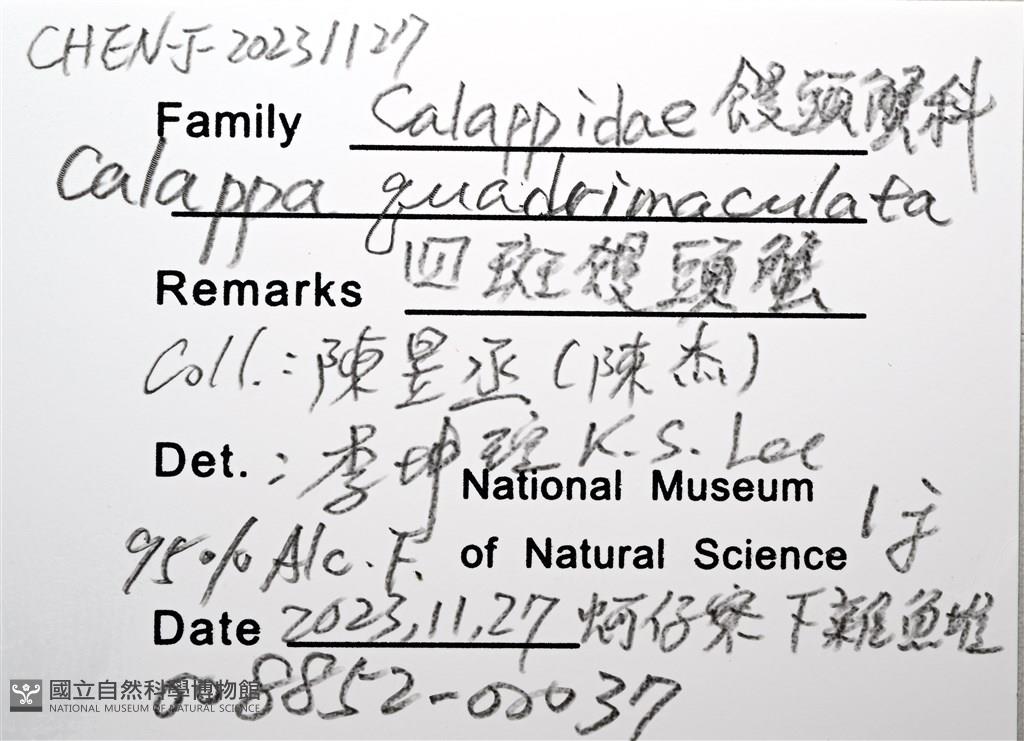 CHEN-J-20231127
Family Calappidae 饅頭蟹科
Calappa quadrimaculata
Remarks 四斑饅頭蟹
Coll.: 陳昱丞(陳杰)
Det.: 李坤瑄 K.S. Lee
National Museum
of Natural Science
95% Alc. F.
Date 2023,11,27 蚵仔寮下雜魚堆
008852-00037
國立自然科學博物館
NATIONAL MUSEUM OF NATURAL SCIENCE